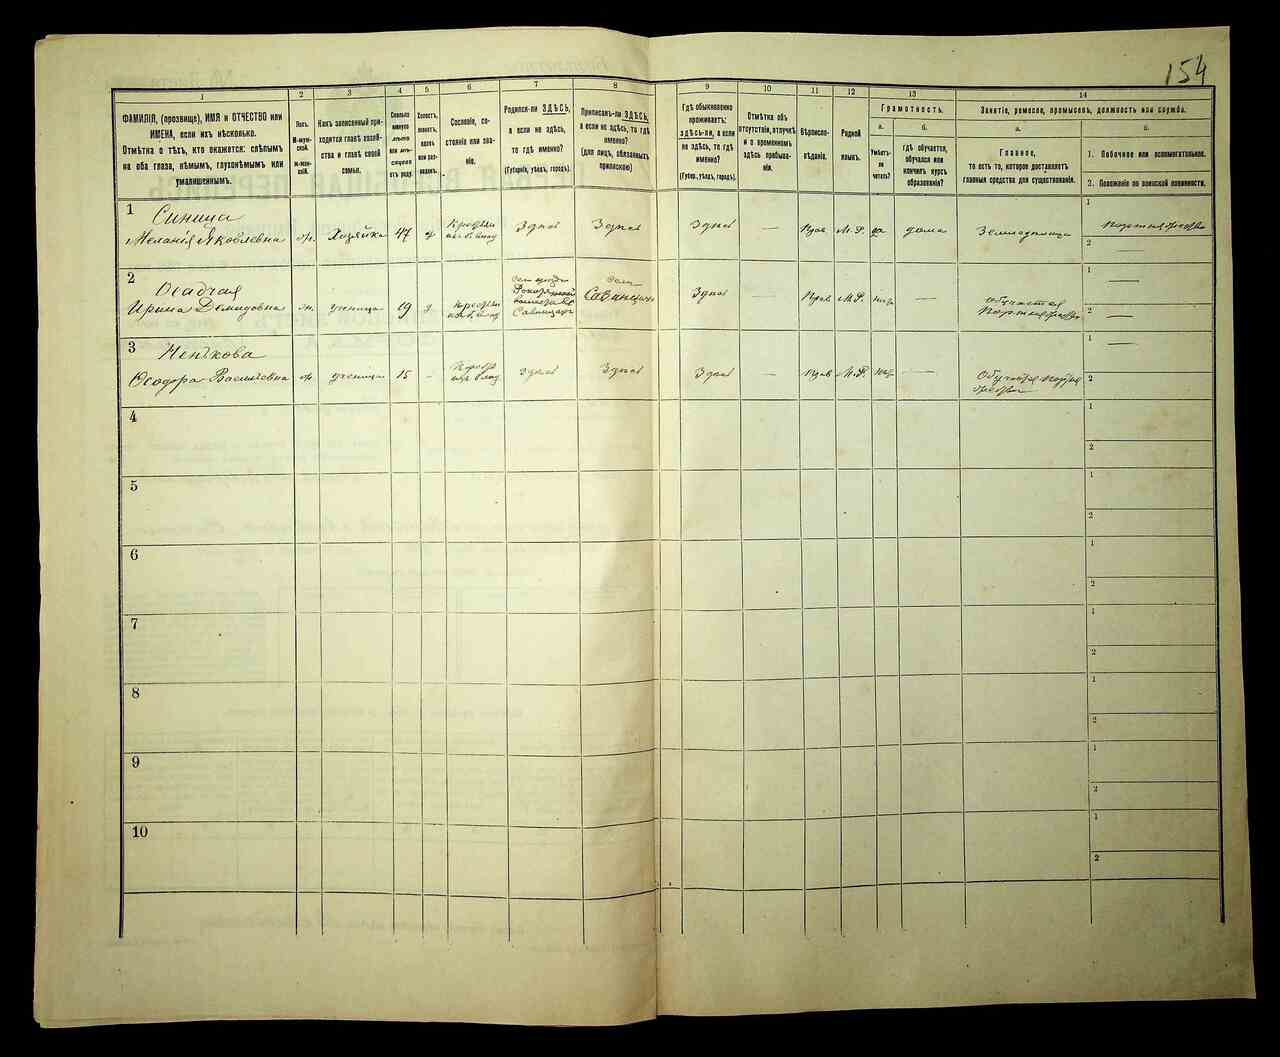 154
1
2
3
4
5
6
7
8
9
10
11
12
13
14
ФАМИЛІЯ, (прозвище), ИМЯ и ОТЧЕСТВО или
ИМЕНА, если ихъ нѣсколько.
Отмѣтка о тѣхъ, кто окажется: слѣпымъ
на оба глаза, нѣмымъ, глухонѣмымъ или
умалишеннымъ.
Полъ.
М-мужской.
Ж-женскій.
Какъ записанный приходится
главѣ хозяйства
и главѣ своей
семьи.
Сколько
минуло
лѣтъ
или мѣсяцевъ
отъ роду.
Холостъ,
женатъ,
вдовъ
или разведенъ.
Сословіе, состояніе
или званіе.
Родился-ли ЗДѢСЬ,
а если не здѣсь,
то гдѣ именно?
(Губернія, уѣздъ, городъ).
Приписанъ-ли ЗДѢСЬ,
а если не здѣсь, то гдѣ
именно?
(для лицъ, обязанныхъ
припискою)
Гдѣ обыкновенно
проживаетъ:
ЗДѢСЬ-ЛИ, а если
не здѣсь, то гдѣ
именно?
(Губер., уѣздъ, городъ).
Отмѣтка объ
отсутствіи, отлучкѣ
и о временномъ
здѣсь пребываніи.
Вѣроисповѣданіе.
Родной
языкъ.
Грамотность.
а.
Умѣетъ-ли
читать?
б.
Гдѣ обучается,
обучался или
кончилъ курсъ
образованія?
Занятіе, ремесло, промыселъ, должность или служба.
а.
Главное,
то есть то, которое доставляетъ
главныя средства для существованія.
б.
1. Побочное или вспомогательное.
2. Положеніе по воинской повинности.
1
Синица
Меланія Яковлевна
ж.
Хозяйка
47
Здѣсь
Здѣсь
Здѣсь
—
М.Р.
да
дома
1
2
2
Осадчая
Ирина Демидовна
ж.
ученица
19
Здѣсь
—
М.Р.
—
обучается
1
—
2
—
3
Ѳеодора Васильевна
ж.
ученица
15
—
Здѣсь
Здѣсь
Здѣсь
—
М.Р.
—
1
—
2
4
1
2
5
1
2
6
1
2
7
1
2
8
1
2
9
1
2
10
1
2